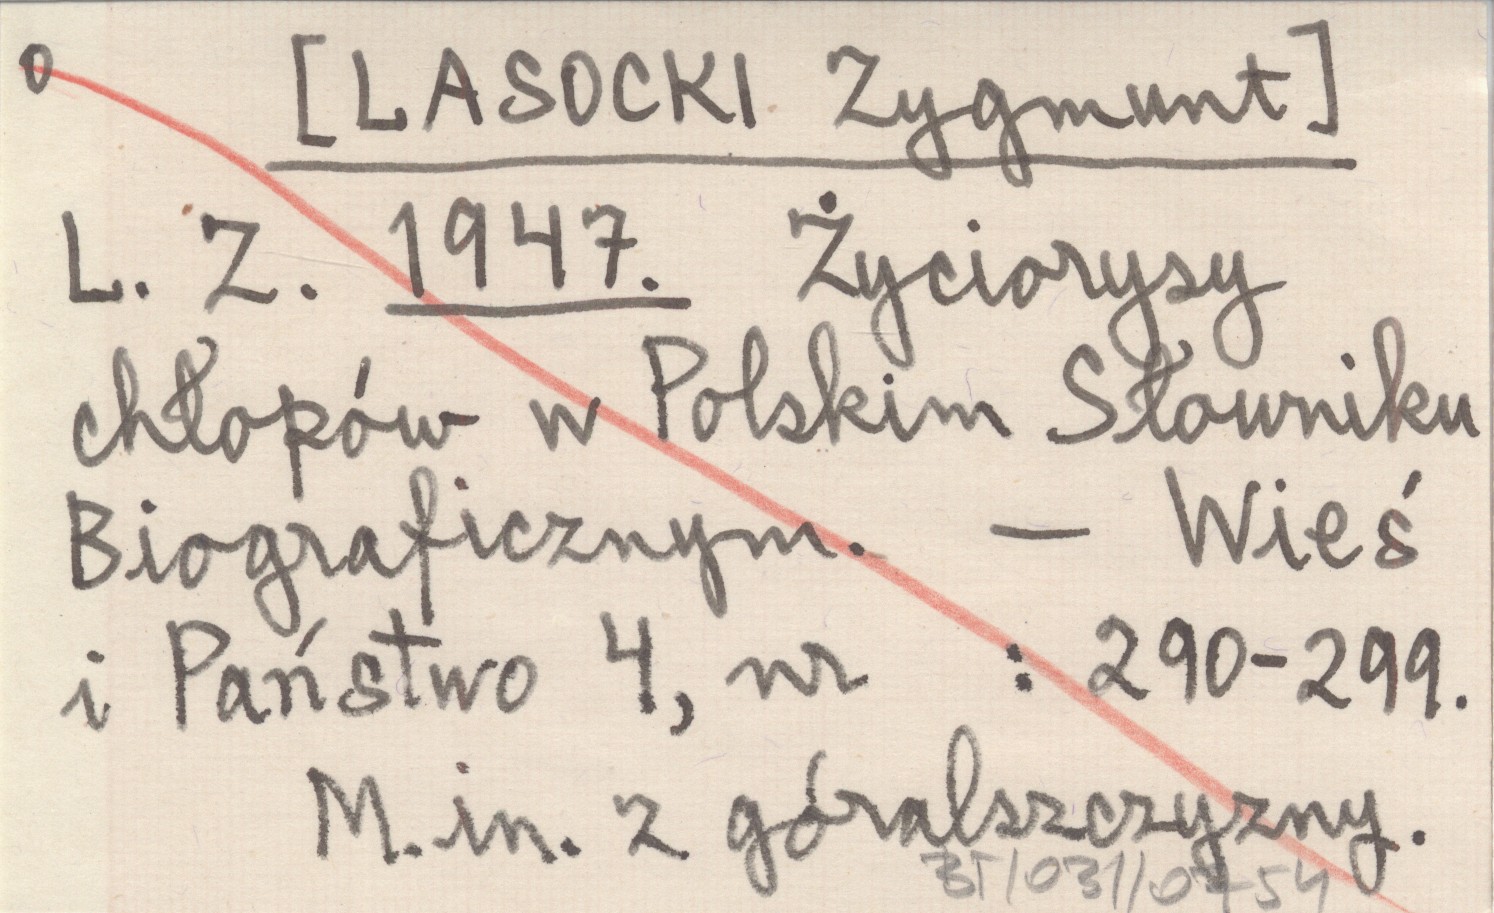 o [LASOCKI Zygmunt]
L. Z. 1947. Życiorysy
chłopów w Polskim Słowniku
Biograficznym. — Wieś
i Państwo 4, nr : 290-299.
M.in. z góralszczyzny.
BT/031/07-54